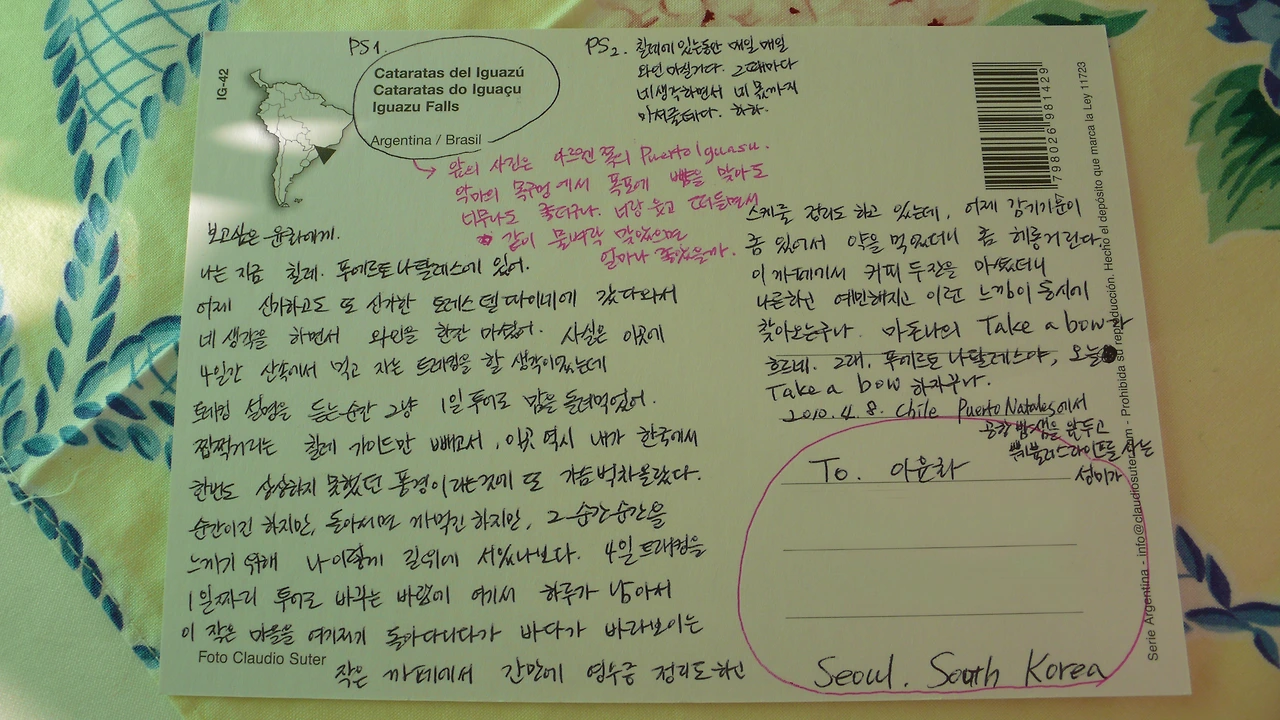 IG-42
PS1.
Cataratas del Iguazú
Cataratas do Iguaçu
Iguazu Falls
Argentina / Brasil
PS2. 칠레에 있는동안 매일 매일
와인 마실거다. 그때마다
네생각하면서 네 몫까지
마셔줄테다. 하하.
앞의 사진은 아르헨 쪽의 Puerto Iguasu.
악마의 목구멍에서 폭포에 뺨을 맞아도
너무나도 좋더구나. 너랑 웃고 떠들면서
같이 물벼락 맞았으면
얼마나 좋았을까.
보고싶은 윤화에게.
나는 지금 칠레. 푸에르토 나탈레스에 있어.
어제 신기하고도 또 신기한 토레스 델 파이네에 갔다와서
네 생각을 하면서 와인을 한잔 마셨어. 사실은 이곳에
4일간 산속에서 먹고 자는 트레킹을 할 생각이었는데
트레킹 설명을 듣는순간 그냥 1일 투어로 맘을 돌려먹었어.
찝쩍거리는 칠레 가이드만 빼고서, 이곳 역시 내가 한국에서
한번도 상상하지 못했던 풍경이라는것에 또 가슴 벅차올랐다.
순간이긴 하지만, 돌아서면 까먹긴 하지만, 그 순간순간을
느끼기 위해 나 이렇게 길위에 서있나보다. 4일 트레킹을
1일짜리 투어로 바꾸는 바람에 여기서 하루가 남아서
이 작은 마을을 여기저기 돌아다니다가 바다가 바라보이는
작은 까페에서 간만에 영수증 정리도 하고
스케줄 정리도 하고 있는데, 어제 감기기운이
좀 있어서 약을 먹었더니 좀 헤롱거린다.
이 까페에서 커피 두잔을 마셨더니
나른하고 예민해지고 이런 느낌이 동시에
찾아오는구나. 마돈나의 Take a bow가
흐르네. 그래, 푸에르토 나탈레스야, 오늘
Take a bow 하자꾸나.
2010. 4. 8. Chile Puerto Natales에서
공항 밤샘을 앞두고
사는
성미가
To. 이윤화
Seoul. South Korea
Foto Claudio Suter
7 798026 981429
Serie Argentina - info@claudiosuter.com - Prohibida su reproducción. Hecho el depósito que marca la Ley 11723